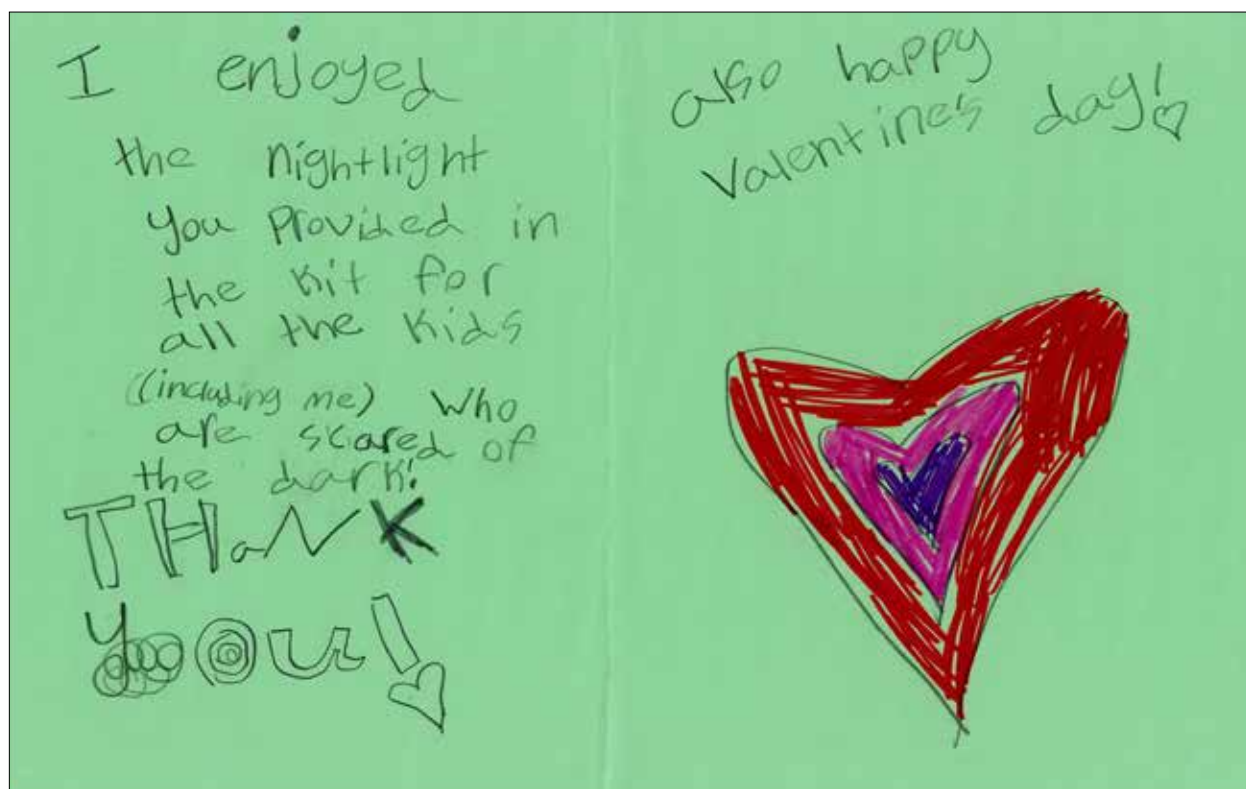 I enjoyed
the nightlight
you provided in
the kit for
all the kids
(including me) who
are scared of
the dark!
THaNK
You!
also happy
valentines day!